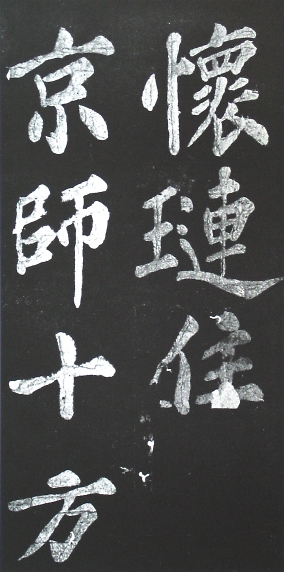 懷璉住
京師十方